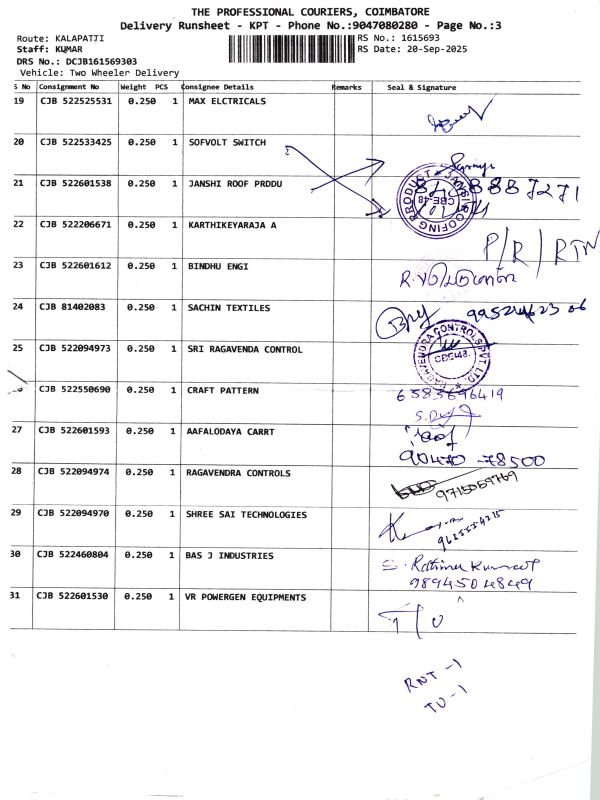 THE PROFESSIONAL COURIERS, COIMBATORE
Delivery Runsheet - KPT - Phone No.:9047080280 - Page No.:3
Route: KALAPATTI RS No.: 1615693
Staff: KUMAR RS Date: 20-Sep-2025
DRS No.: DCJB161569303
Vehicle: Two Wheeler Delivery
S No Consignment No Weight PCS Consignee Details Remarks Seal & Signature
19 CJB 522525531 0.250 1 MAX ELCTRICALS
20 CJB 522533425 0.250 1 SOFVOLT SWITCH
21 CJB 522601538 0.250 1 JANSHI ROOF PRDDU
22 CJB 522206671 0.250 1 KARTHIKEYARAJA A P/R/RTN
23 CJB 522601612 0.250 1 BINDHU ENGI
24 CJB 81402083 0.250 1 SACHIN TEXTILES
25 CJB 522094973 0.250 1 SRI RAGAVENDA CONTROL
CJB 522550690 0.250 1 CRAFT PATTERN
27 CJB 522601593 0.250 1 AAFALODAYA CARRT
90470-78500
28 CJB 522094974 0.250 1 RAGAVENDRA CONTROLS
9715059769
29 CJB 522094970 0.250 1 SHREE SAI TECHNOLOGIES
30 CJB 522460804 0.250 1 BAS J INDUSTRIES
9894504849
31 CJB 522601530 0.250 1 VR POWERGEN EQUIPMENTS
RNT -1
TU -1